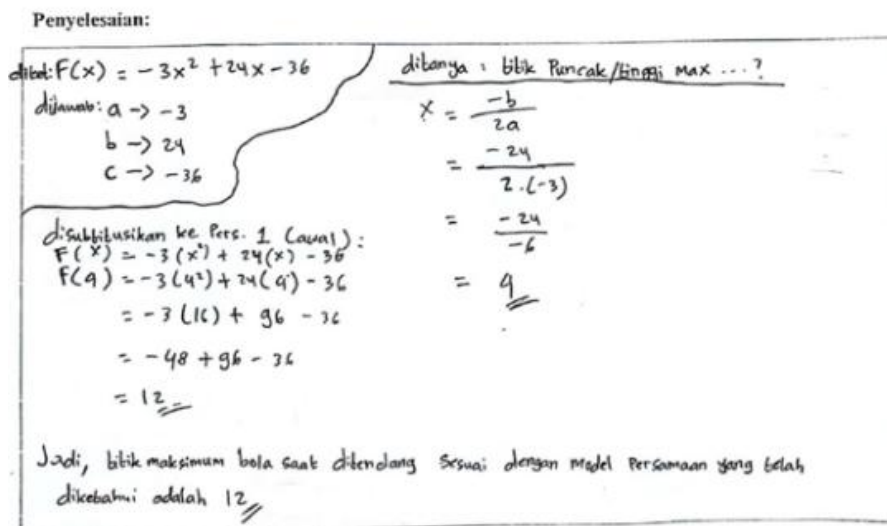 Penyelesaian:
diket: F(x) = -3x² + 24x - 36
dijawab: a -> -3
b -> 24
c -> -36
ditanya : titik Puncak/tinggi Max ...?
x = -b / 2a
= -24 / 2.(-3)
= -24 / -6
= 4
disubtitusikan ke Pers. 1 (awal) :
F(x) = -3(x²) + 24(x) - 36
F(4) = -3(4²) + 24(4) - 36
= -3(16) + 96 - 36
= -48 + 96 - 36
= 12
Jadi, titik maksimum bola saat ditendang sesuai dengan model Persamaan yang telah
diketahui adalah 12